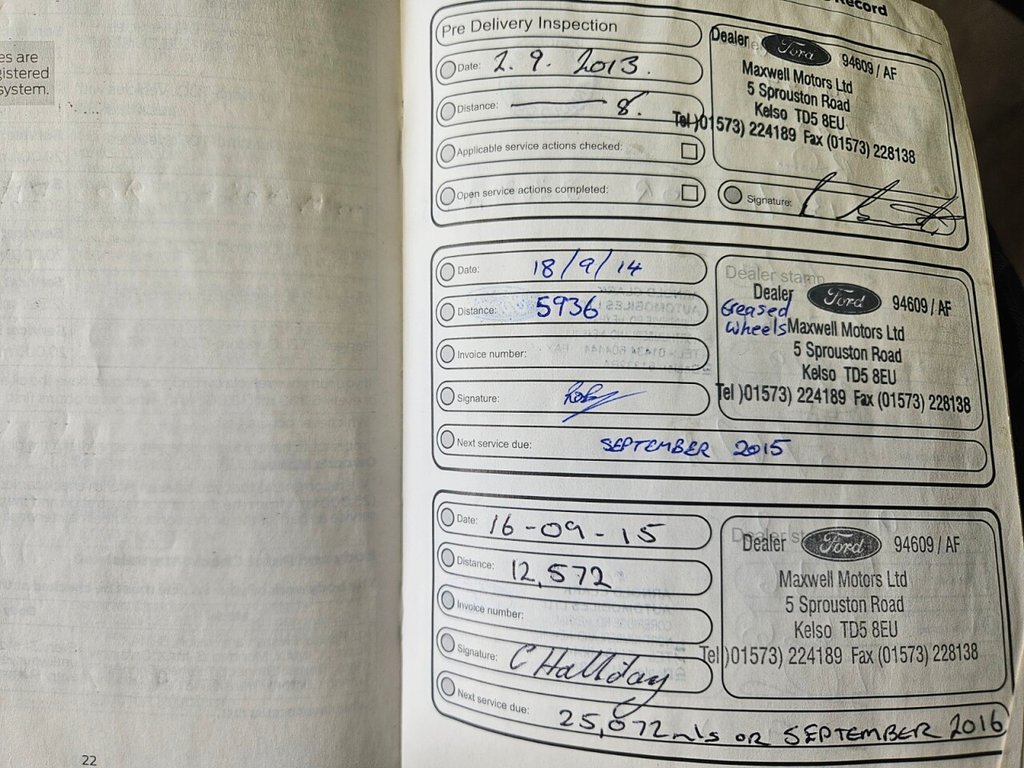 es are
gistered
system.
22
Record
Pre Delivery Inspection
Date: 2.9.2013.
Distance: 8.
Applicable service actions checked:
Open service actions completed:
Dealer Ford 94609 / AF
Maxwell Motors Ltd
5 Sprouston Road
Kelso TD5 8EU
Tel )01573) 224189 Fax (01573) 228138
Signature:
Date: 18/9/14
Distance: 5936
Invoice number:
Signature:
Next service due: SEPTEMBER 2015
Dealer stamp
Dealer Ford 94609 / AF
Greased
Wheels Maxwell Motors Ltd
5 Sprouston Road
Kelso TD5 8EU
Tel )01573) 224189 Fax (01573) 228138
Date: 16-09-15
Distance: 12,572
Invoice number:
Signature: C Halliday
Next service due: 25,072 mls OR SEPTEMBER 2016
Dealer Ford 94609 / AF
Maxwell Motors Ltd
5 Sprouston Road
Kelso TD5 8EU
Tel )01573) 224189 Fax (01573) 228138